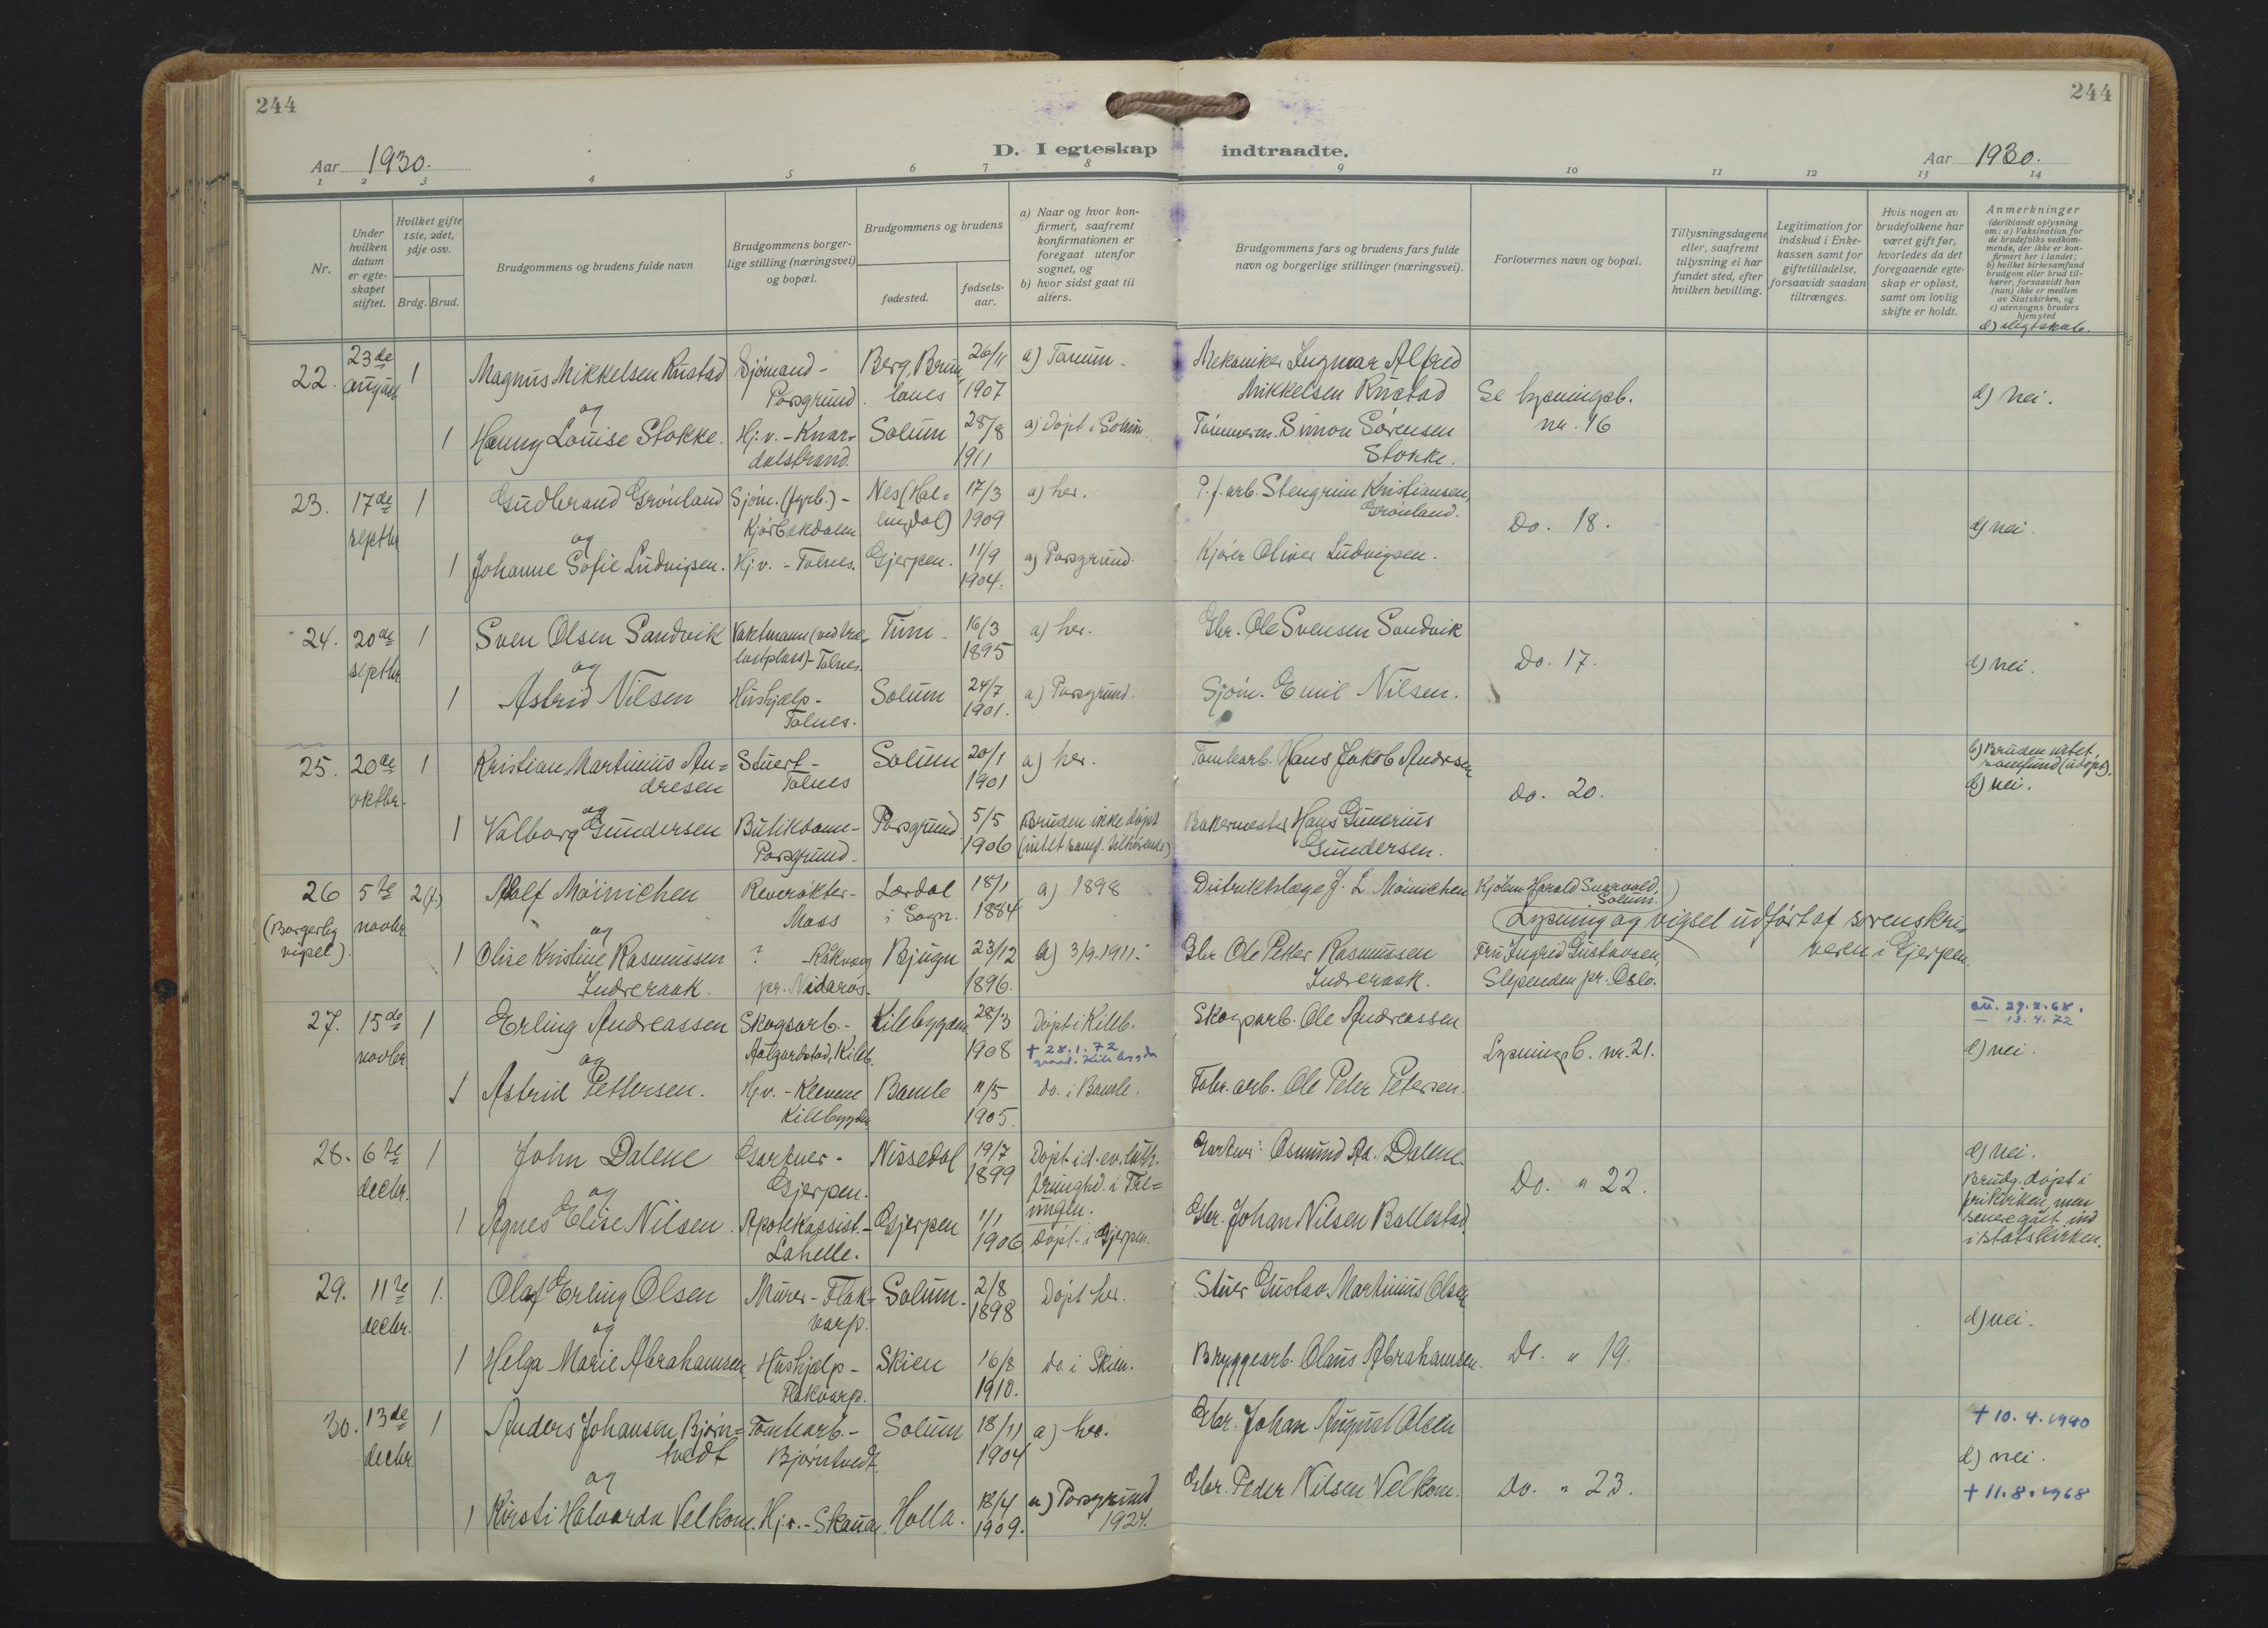 244
244
D. I egteskap indtraadte.
Aar 1930.
Aar 1930.
1 2 3 4 5 6 7 8 9 10 11 12 13 14
Nr.
Under hvilken datum er egteskapet stiftet.
Hvilket gifte 1ste, 2det, 3dje osv.
Brdg. Brud.
Brudgommens og brudens fulde navn
Brudgommens borgerlige stilling (næringsvei) og bopæl.
Brudgommens og brudens
fødested.
fødselsaar.
a) Naar og hvor konfirmert, saafremt konfirmationen er foregaat utenfor sognet, og
b) hvor sidst gaat til alters.
Brudgommens fars og brudens fars fulde navn og borgerlige stillinger (næringsvei).
Forlovernes navn og bopæl.
Tillysningsdagene eller, saafremt tillysning ei har fundet sted, efter hvilken bevilling.
Legitimation for indskud i Enkekassen samt for giftetilladelse, forsaavidt saadan tiltrænges.
Hvis nogen av brudefolkene har været gift før, hvorledes da det foregaaende egteskap er opløst, samt om lovlig skifte er holdt.
Anmerkninger
(deriblandt oplysning om: a) Vaksination for de brudefolks vedkommende, der ikke er konfirmert her i landet;
b) hvilket kirkesamfund brudgom eller brud tilhører, forsaavidt han (hun) ikke er medlem av Statskirken, og
c) utensogns bruders hjemsted
d) slegtskab.
22. 23de august 1 Magnus Mikkelsen Rustad Sjömand - Porsgrund. Berg, Brunlanes 26/11 1907 a) Tanum - Mekaniker Ingmar Alfred Mikkelsen Rustad Se lysningsb. nr. 16 d) nei.
og
1 Hanny Louise Stokke. Hj.v. - Knardalstrand. Solum 28/8 1911 a) Döpt i Solum. Tömmerm. Simon Sörensen Stokke.
23. 17de septbr 1 Gudbrand Grönland Sjöm. (fyrb.) - Kjörbekdalen Nes (Hallingdal) 17/3 1909 a) her. P.f.arb. Stengrim Kristiansen Grönland. Do. 18. d) nei.
og
1 Johanne Sofie Ludvigsen. Hj.v. - Tolnes. Gjerpen. 11/9 1904. a) Porsgrund. Kjörer Oliver Ludvigsen.
24. 20de septbr. 1 Sven Olsen Sandvik Vaktmann (ved trælastplass) - Tolnes. Tinn - 16/3 1895 a) her. Gbr. Ole Svensen Sandvik Do. 17. d) nei.
og
1 Astrid Nilsen Hushjælp - Tolnes. Solum 24/7 1901. a) Porsgrund. Sjöm. Emil Nilsen.
25. 20de oktbr. 1 Kristian Martinius Andresen Stuert - Tolnes Solum 20/1 1901 a) her. Tomtearb. Hans Jakob Andresen do. 20. b) Bruden intet samfund (udöpt). d) nei.
og
1 Valborg Gundersen Butikdame - Porsgrund - Porsgrund 5/5 1906 Bruden ikke döpt (intet samf. tilhörende) Bakermester Hans Gunerius Gundersen.
26 (Borgerlig vigsel). 5te novbr 2(f.) Alf Möinichen Reverökter - Moss Lærdal i Sogn. 18/1 1884 a) 1898 Distriktslæge J. L. Möinichen Kjöbm Harald Solum. Lysning og vigsel udfört af sorenskriveren i Gjerpen.
og
1 Olise Kristine Rasmussen Indreraak. ? Råkvaag pr. Nidaros. Bjugn 23/12 1896. a) 3/9-1911. Gbr. Ole Petter Rasmussen Indreraak. Fru Ingrid Gustavsen, Slependen pr. Oslo.
27. 15de novbr. 1 Erling Andreassen Skogsarb. - Aalgardstad, Kileb. Kilebygden 28/3 1908 Döpt i Kileb. + 28.1.72 Kilebygda Skogsarb. Ole Andreassen Lysningsb. nr. 21. 13.4.72 d) nei.
og
1 Astrid Pettersen. Hj.v. - Klevene Kilebygden Bamle 11/5 1905. do. i Bamle. Fabr. arb. Ole Peter Petersen.
28. 6te decbr. 1 John Dalene Gartner - Gjerpen. Nissedal 19/7 1899 Döpt i d. ev. luth. frimghd. i Tel= ungen. Gartner Osmund Aa. Dalene. Do. " 22. d) nei. Brudg. döpt i frikirken, men senere gaat ind i statskirken.
og
1 Agnes Elise Nilsen. Apotekassist. - Lahelle. Gjerpen 1/1 1906 Döpt i Gjerpen. Gbr. Johan Nilsen Ballestad
29. 11te decbr. 1. Olaf Erling Olsen Murer - Flakvarp. Solum. 2/8 1898 Döpt her. Stuer Gustav Martinius Olsen d) nei.
og
1 Helga Marie Abrahamsen Hushjælp - Flakvarp. Skien 16/8 1910. do. i Skien. Bryggearb. Olaus Abrahamsen. Do. " 19.
30. 13de decbr 1 Anders Johansen Björntvedt Tomtearb. - Björntvedt. Solum 18/11 1904 a) her. Gbr. Johan August Olsen + 10.4.1940 d) nei.
og
1 Kirsti Halvarda Velkom. Hj.v. - Skaua. Holla. 18/4 1909. a) Porsgrund 1924. Gbr. Peder Nilsen Velkom. Do. " 23. + 11.8.1968